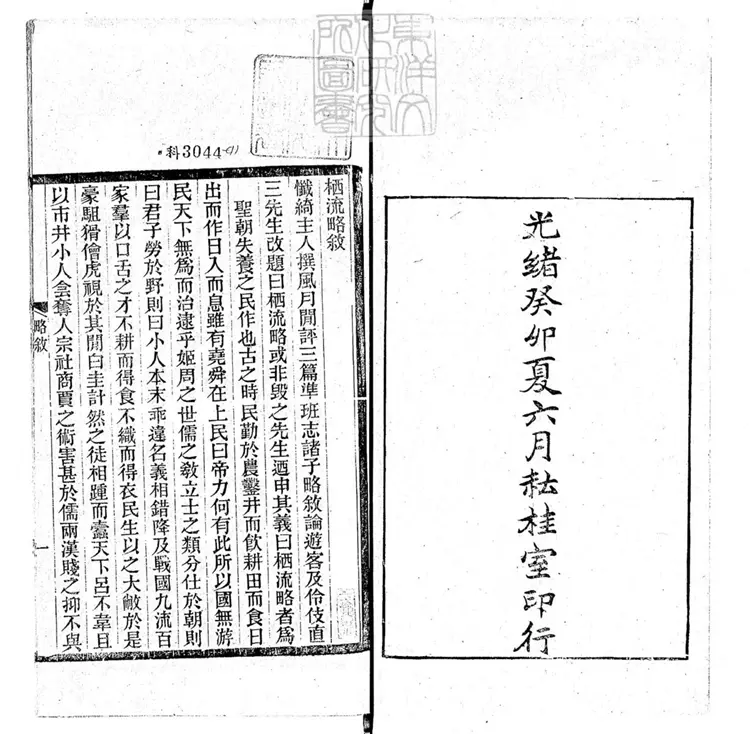 東洋文
化研究
所圖書
光緒癸卯夏六月耘桂室印行
·科3044
栖流略敘
懺綺主人撰風月閒評三篇準班志諸子略敘論遊客及伶伎直
三先生改題曰栖流略或非毀之先生迺申其義曰栖流略者為
聖朝失養之民作也古之時民勤於農鑿井而飲耕田而食日
出而作日入而息雖有堯舜在上民曰帝力何有此所以國無游
民天下無為而治逮乎姬周之世儒之教立士之類分仕於朝則
曰君子勞於野則曰小人本末乖違名義相錯降及戰國九流百
家羣以口舌之才不耕而得食不織而得衣民生以之大敝於是
豪駔猾儈虎視於其閒白圭計然之徒相踵而蠹天下呂不韋且
以市井小人侌奪人宗社商賈之術害甚於儒兩漢賤之抑不與
略敘
一